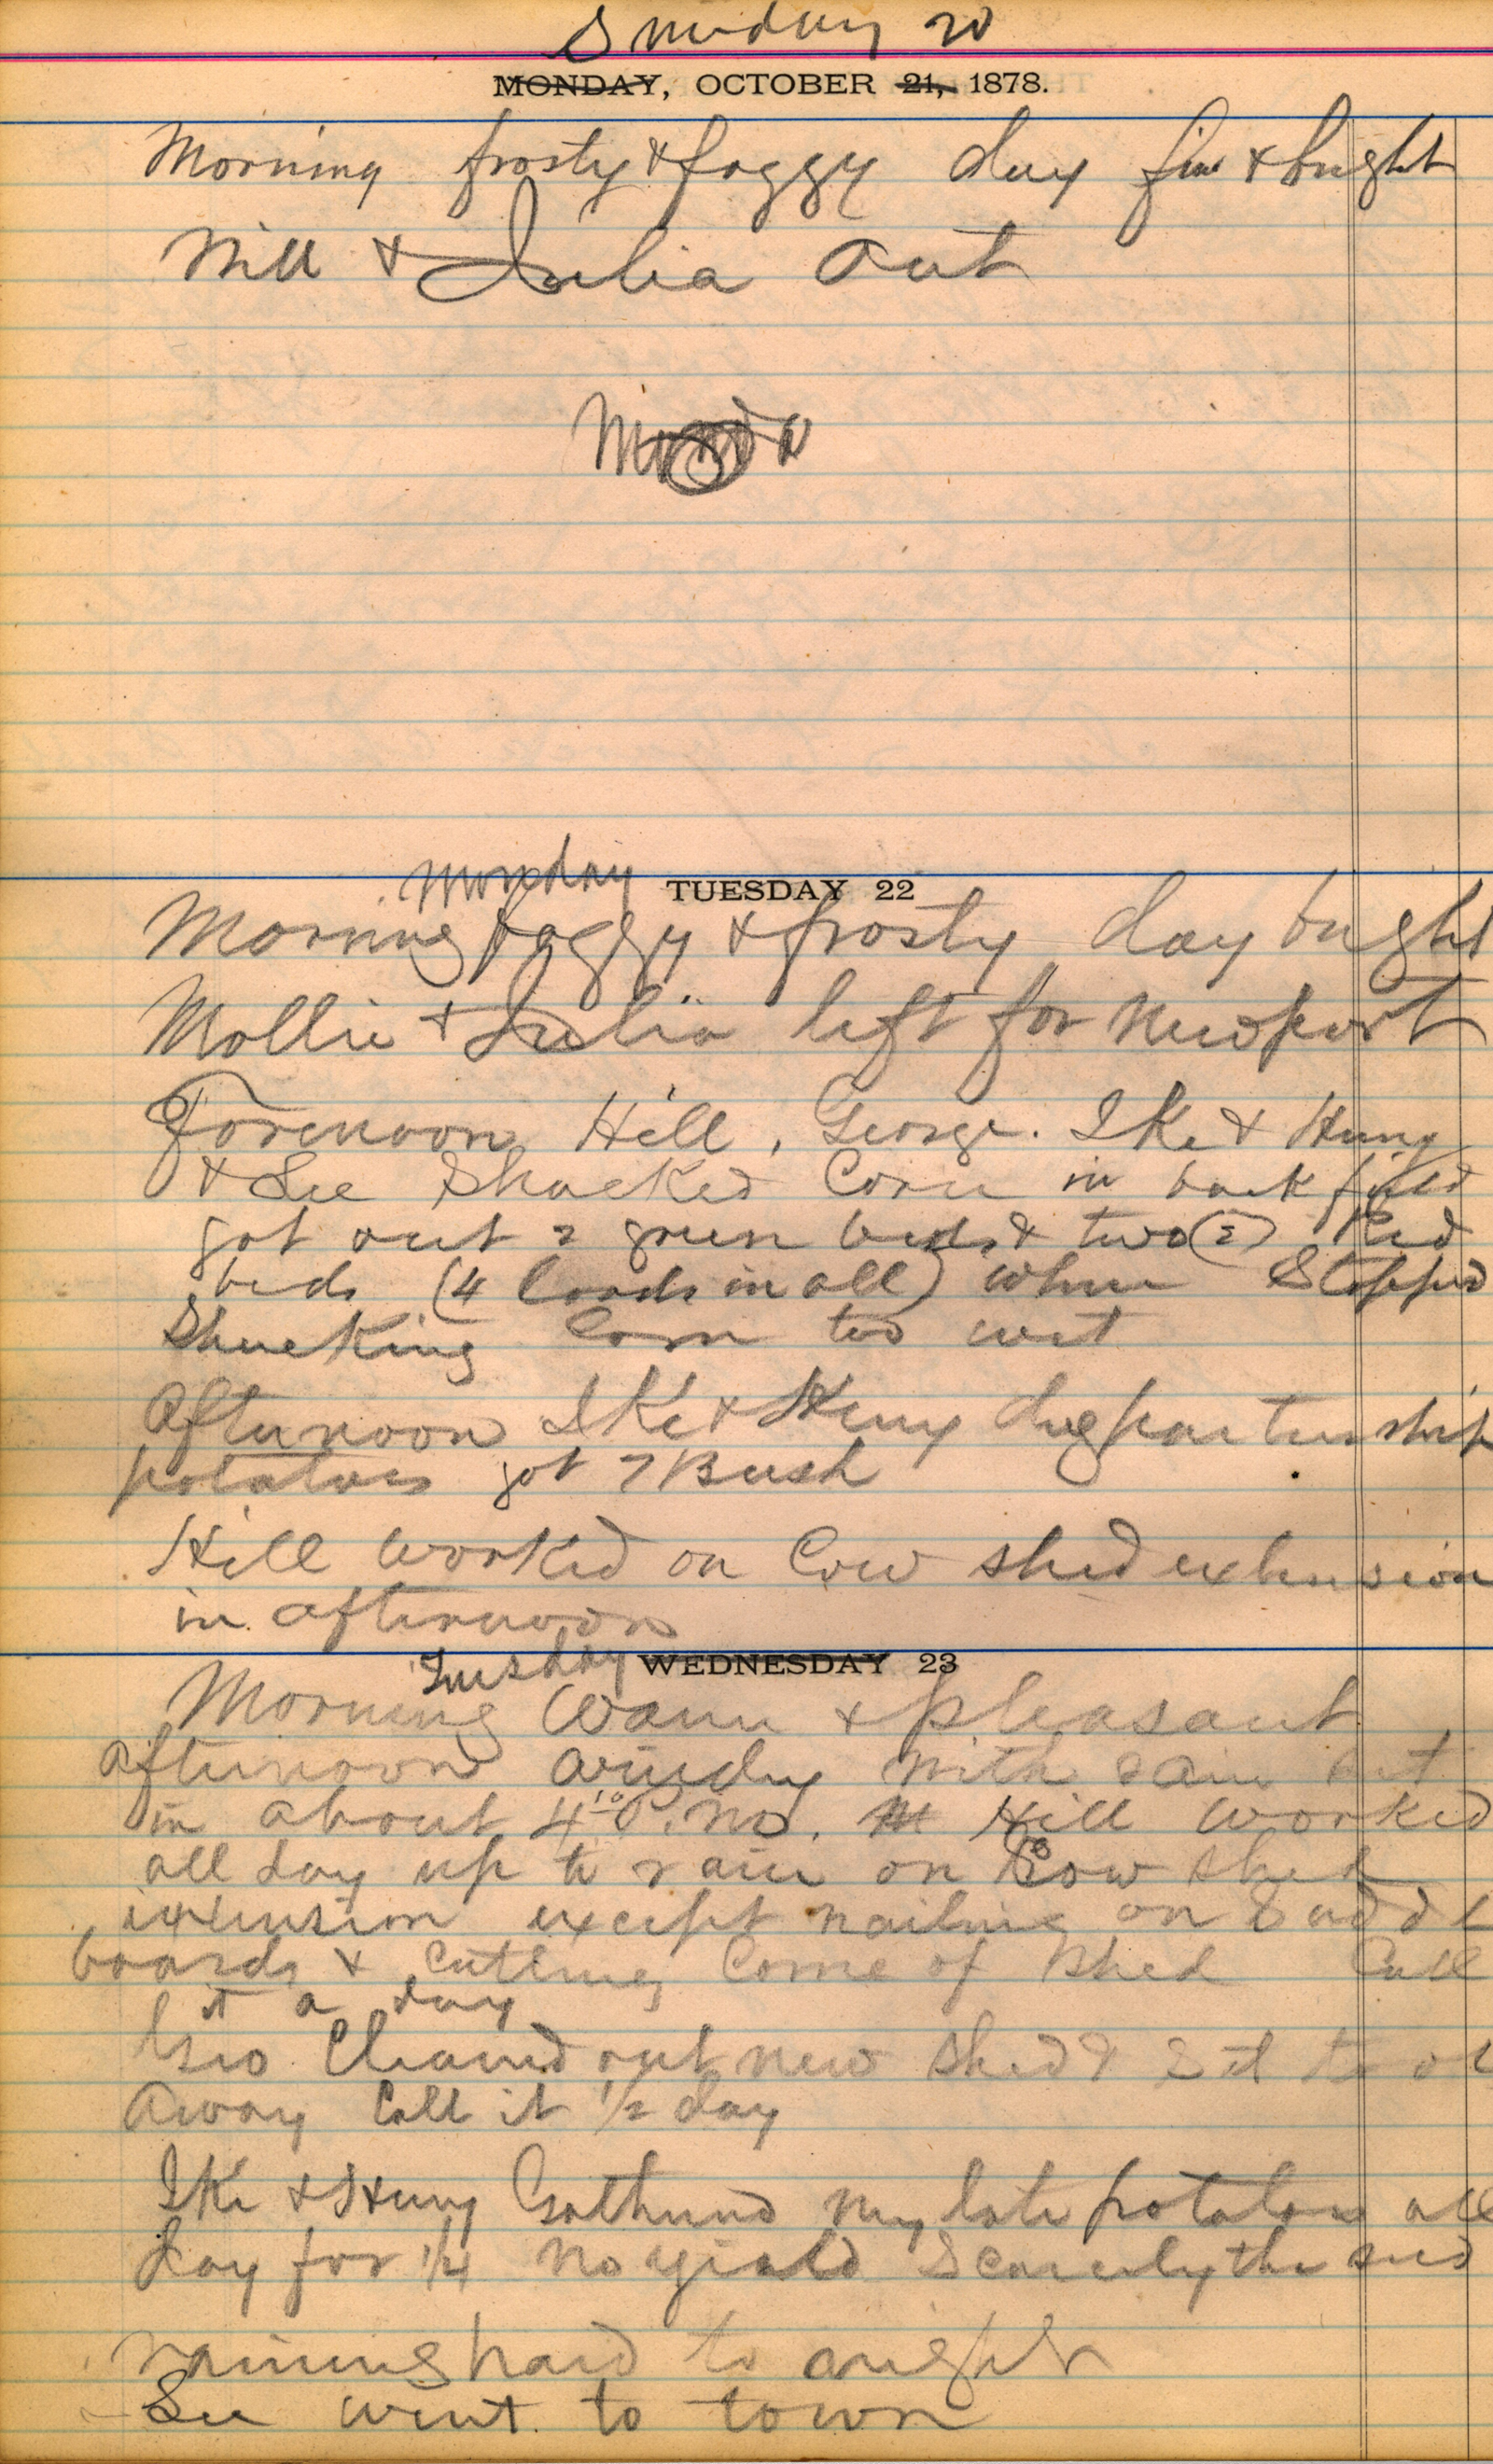 Sunday 20
MONDAY, OCTOBER 21, 1878.
Morning frosty & foggy day fine & bright
Will & Julia out
Monda
Monday TUESDAY 22
Morning foggy & frosty day bright
Mollie & Julia left for Newport
Forenoon Hill, George. Ike & Henry
& Lee Shucked Corn in back field
got out 2 green beds & two (2) Red
beds (4 loads in all) when Stopped
Shucking Corn too wet
Afternoon Ike & Henry dug partnership
potatoes got 7 Bush
Hill worked on Cow shed extension
in afternoon
Tuesday WEDNESDAY 23
Morning Warm & pleasant
afternoon windy with rain set
in about 4 10 P.M. Hill worked
all day up to rain on Cow shed
extension except nailing on
boards & cutting of shed Call
it a day
Geo. Cleaned out new shed &
Away Call it 1/2 day
Ike & Henry Gathered my late potatoes all
day for 1/4 no yield Scarcely the seed
raining hard to night
Lee went to town